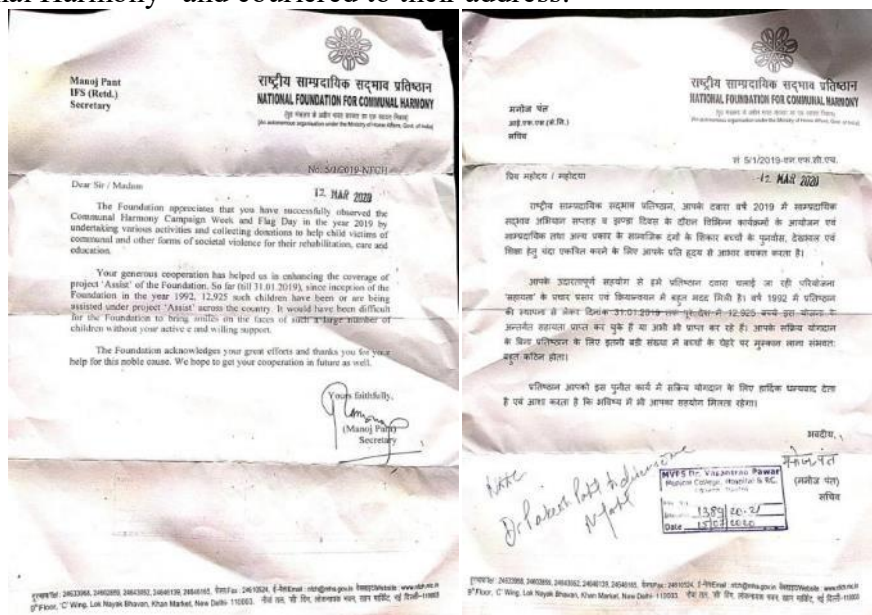 nal Harmony" and couriered to their address.
Manoj Pant
IFS (Retd.)
Secretary
राष्ट्रीय साम्प्रदायिक सद्भाव प्रतिष्ठान
NATIONAL FOUNDATION FOR COMMUNAL HARMONY
(An autonomous organisation under the Ministry of Home Affairs, Govt. of India)
No. 5/1/2019-NFCH
Dear Sir / Madam
12 MAR 2020
The Foundation appreciates that you have successfully observed the
Communal Harmony Campaign Week and Flag Day in the year 2019 by
undertaking various activities and collecting donations to help child victims of
communal and other forms of societal violence for their rehabilitation, care and
education.
Your generous cooperation has helped us in enhancing the coverage of
project 'Assist' of the Foundation. So far (till 31.01.2019), since inception of the
Foundation in the year 1992, 12,925 such children have been or are being
assisted under project 'Assist' across the country. It would have been difficult
for the Foundation to bring smiles on the faces of such a large number of
children without your active e and willing support.
The Foundation acknowledges your great efforts and thanks you for your
help for this noble cause. We hope to get your cooperation in future as well.
Yours faithfully,
(Manoj Pant)
Secretary
9th Floor, 'C' Wing, Lok Nayak Bhavan, Khan Market, New Delhi- 110003
मनोज पंत
आई.एफ.एस (से.नि.)
सचिव
राष्ट्रीय साम्प्रदायिक सद्भाव प्रतिष्ठान
NATIONAL FOUNDATION FOR COMMUNAL HARMONY
(An autonomous organisation under the Ministry of Home Affairs, Govt. of India)
सं 5/1/2019-एन.एफ.सी.एच.
प्रिय महोदय / महोदया
12 MAR 2020
राष्ट्रीय साम्प्रदायिक सद्भाव प्रतिष्ठान, आपके दवारा वर्ष 2019 में साम्प्रदायिक
सद्भाव अभियान सप्ताह व झण्डा दिवस के दौरान विभिन्न कार्यक्रमों के आयोजन एवं
साम्प्रदायिक तथा अन्य प्रकार के सामाजिक दंगों के शिकार बच्चों के पुनर्वास, देखभाल एवं
शिक्षा हेतु चंदा एकत्रित करने के लिए आपके प्रति हृदय से आभार व्यक्त करता है।
आपके उदारतापूर्ण सहयोग से हमे प्रतिष्ठान दवारा चलाई जा रही परियोजना
'सहायता' के प्रचार प्रसार एवं क्रियान्वयन में बहुत मदद मिली है। वर्ष 1992 में प्रतिष्ठान
की स्थापना से लेकर दिनांक 31.01.2019 तक पूरे देश में 12,925 बच्चे इस योजना के
अन्तर्गत सहायता प्राप्त कर चुके हैं या अभी भी प्राप्त कर रहे हैं। आपके सक्रिय योगदान
के बिना प्रतिष्ठान के लिए इतनी बड़ी संख्या में बच्चों के चेहरे पर मुस्कान लाना संभवतः
बहुत कठिन होता।
प्रतिष्ठान आपको इस पुनीत कार्य में सक्रिय योगदान के लिए हार्दिक धन्यवाद देता
है एवं आशा करता है कि भविष्य में भी आपका सहयोग मिलता रहेगा।
भवदीय,
मनोज पंत
(मनोज पंत)
सचिव
MVPS Dr. Vasantrao Pawar
Medical College, Hospital & RC.
1389/20-21
Date 15/07/2020
9th Floor, 'C' Wing, Lok Nayak Bhavan, Khan Market, New Delhi- 110003